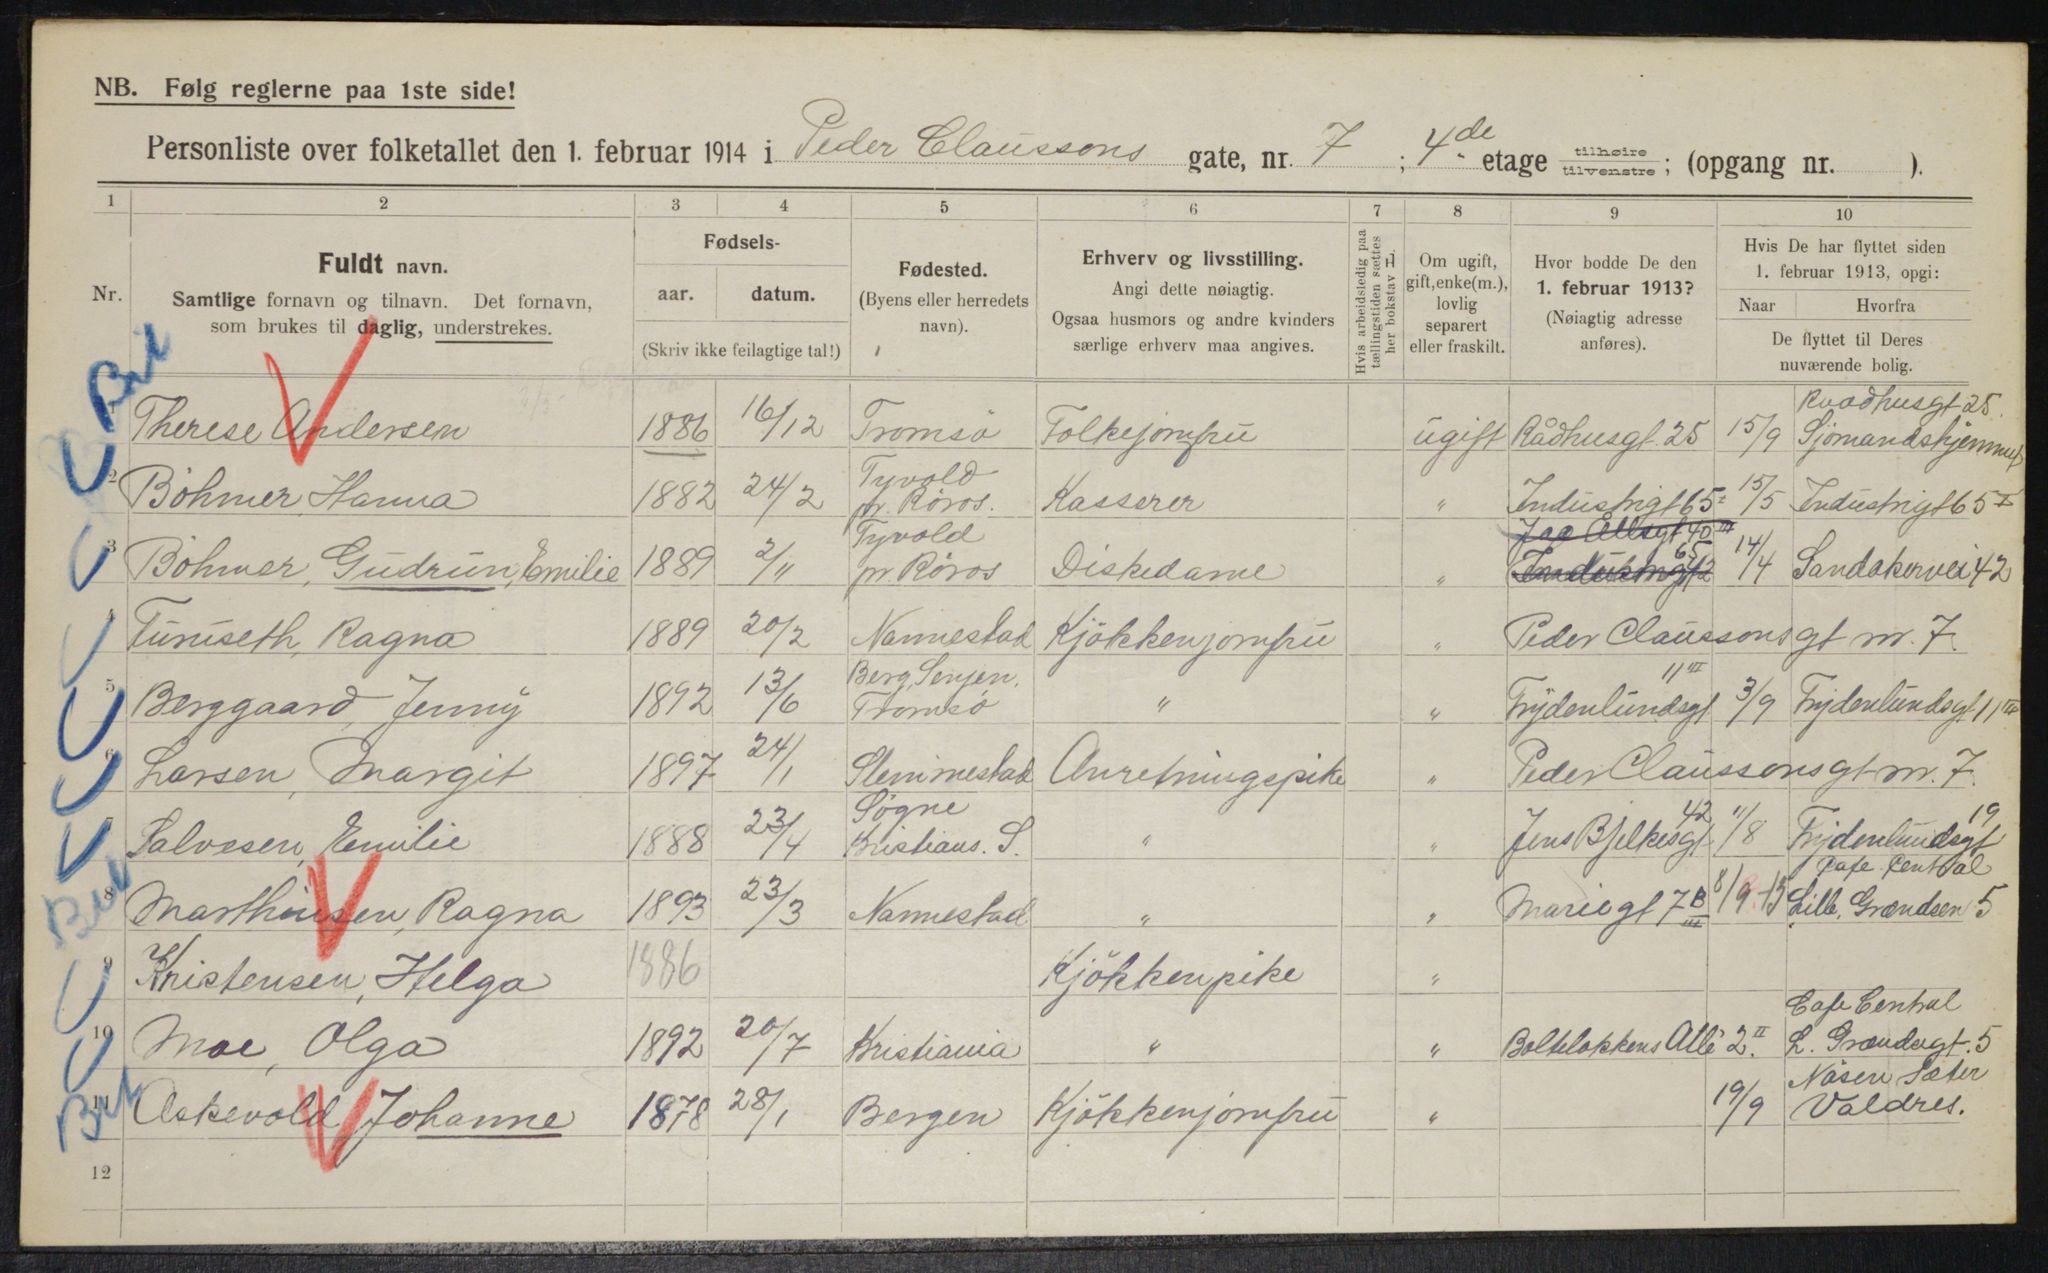 NB. Følg reglerne paa 1ste side!
Personliste over folketallet den 1. februar 1914 i Peder Claussons gate, nr. 7 ; 4de etage tilhøire tilvenstre; (opgang nr. ).
1 2 3 4 5 6 7 8 9 10
Nr.
Fuldt navn.
Samtlige fornavn og tilnavn. Det fornavn,
som brukes til daglig, understrekes.
Fødsels-
aar. datum.
(Skriv ikke feilagtige tal!)
Fødested.
(Byens eller herredets
navn).
Erhverv og livsstilling.
Angi dette nøiagtig.
Ogsaa husmors og andre kvinders
særlige erhverv maa angives.
Hvis arbeidsledig paa
tællingstiden sættes
her bokstav L.
Om ugift,
gift, enke(m.),
lovlig
separert
eller fraskilt.
Hvor bodde De den
1. februar 1913?
(Nøiagtig adresse
anføres).
Hvis De har flyttet siden
1. februar 1913, opgi:
Naar Hvorfra
De flyttet til Deres
nuværende bolig.
1 Therese Andersen 1886 16/12 Tromsö Tolkejomfru ugift Rådhusgt. 25 15/9 Raadhusgt 25. Sjömandshjemmet
2 Böhmer, Hanna 1882 24/2 Tyvold pr. Röros. Kasserer " Industrigt 65 15/5 Industrigt 65 II
3 Böhmer, Gudrun, Emilie 1889 2/11 Tyvold pr. Röros Diskedame " 14/4 Sandakervei 42
4 Furuseth, Ragna 1889 20/2 Nannestad Kjökkenjomfru " Peder Claussons gt nr. 7.
5 Berggaard, Jenny 1892 13/6 Berg, Senjen. Tromsö " " Frydenlundsgt 11 III 3/9 Frydenlundsgt 11 III
6 Larsen, Margit 1897 24/1 Slemmestad Anretningspike " Peder Claussons gt nr. 7.
7 Salvesen, Emilie 1888 23/4 Sögne Kristians. S. " " Jens Bjelkesgt 42 11/8 Frydenlundsgt 19
8 Marthinsen, Ragna 1893 23/3 Nannestad " " Mariegt 7 B III 8/9 - 13 Cafe Central Lille, Grændsen 5
9 Kristensen, Helga 1886 Kjökkenpike "
10 Moe, Olga 1892 20/7 Kristiania " " Bolteløkkens Allé 2. II Cafe Central L. Grændsgt. 5
11 Askevold, Johanne 1878 28/1 Bergen Kjökkenjomfru " 19/9 Nösen Sæter Valdres.
12